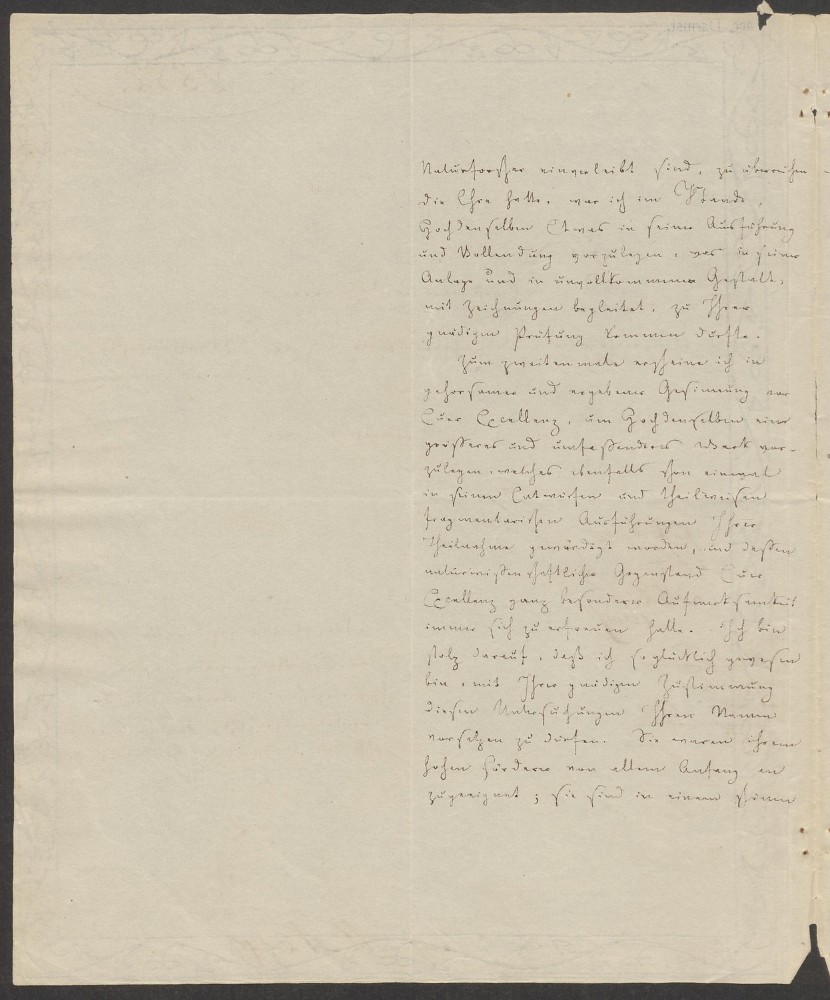 Naturforscher einverleibt sind, zu überreichen
die Ehre hatte, war ich im Stande,
Hochdenselben Etwas in seiner Ausführung
und Vollendung vorzulegen, was in seiner
Anlage und in unvollkommener Gestalt,
mit Zeichnungen begleitet, zu Ihrer
gnädigen Prüfung kommen durfte.
Zum zweitenmale erscheine ich in
gehorsamer und ergebener Gesinnung vor
Euer Excellenz, um Hochdenselben eine
größeres und umfassenderes Werk vor-
zulegen, welches ebenfalls schon einmal
in seinen Entwürfen und theilweisen
fragmentarischen Ausführungen Ihrer
Theilnahme gewürdigt worden, und dessen
naturwissenschaftlicher Gegenstand Euer
Excellenz ganz besonderer Aufmerksamkeit
immer sich zu erfreuen hatte. Ich bin
stolz darauf, daß ich so glücklich gewesen
bin, mit Ihrer gnädigen Zustimmung
diesen Untersuchungen Ihren Namen
vorsetzen zu dürfen. Sie waren ihrem
hohen Förderer von allem Anfang an
zugeeignet; sie sind in einem